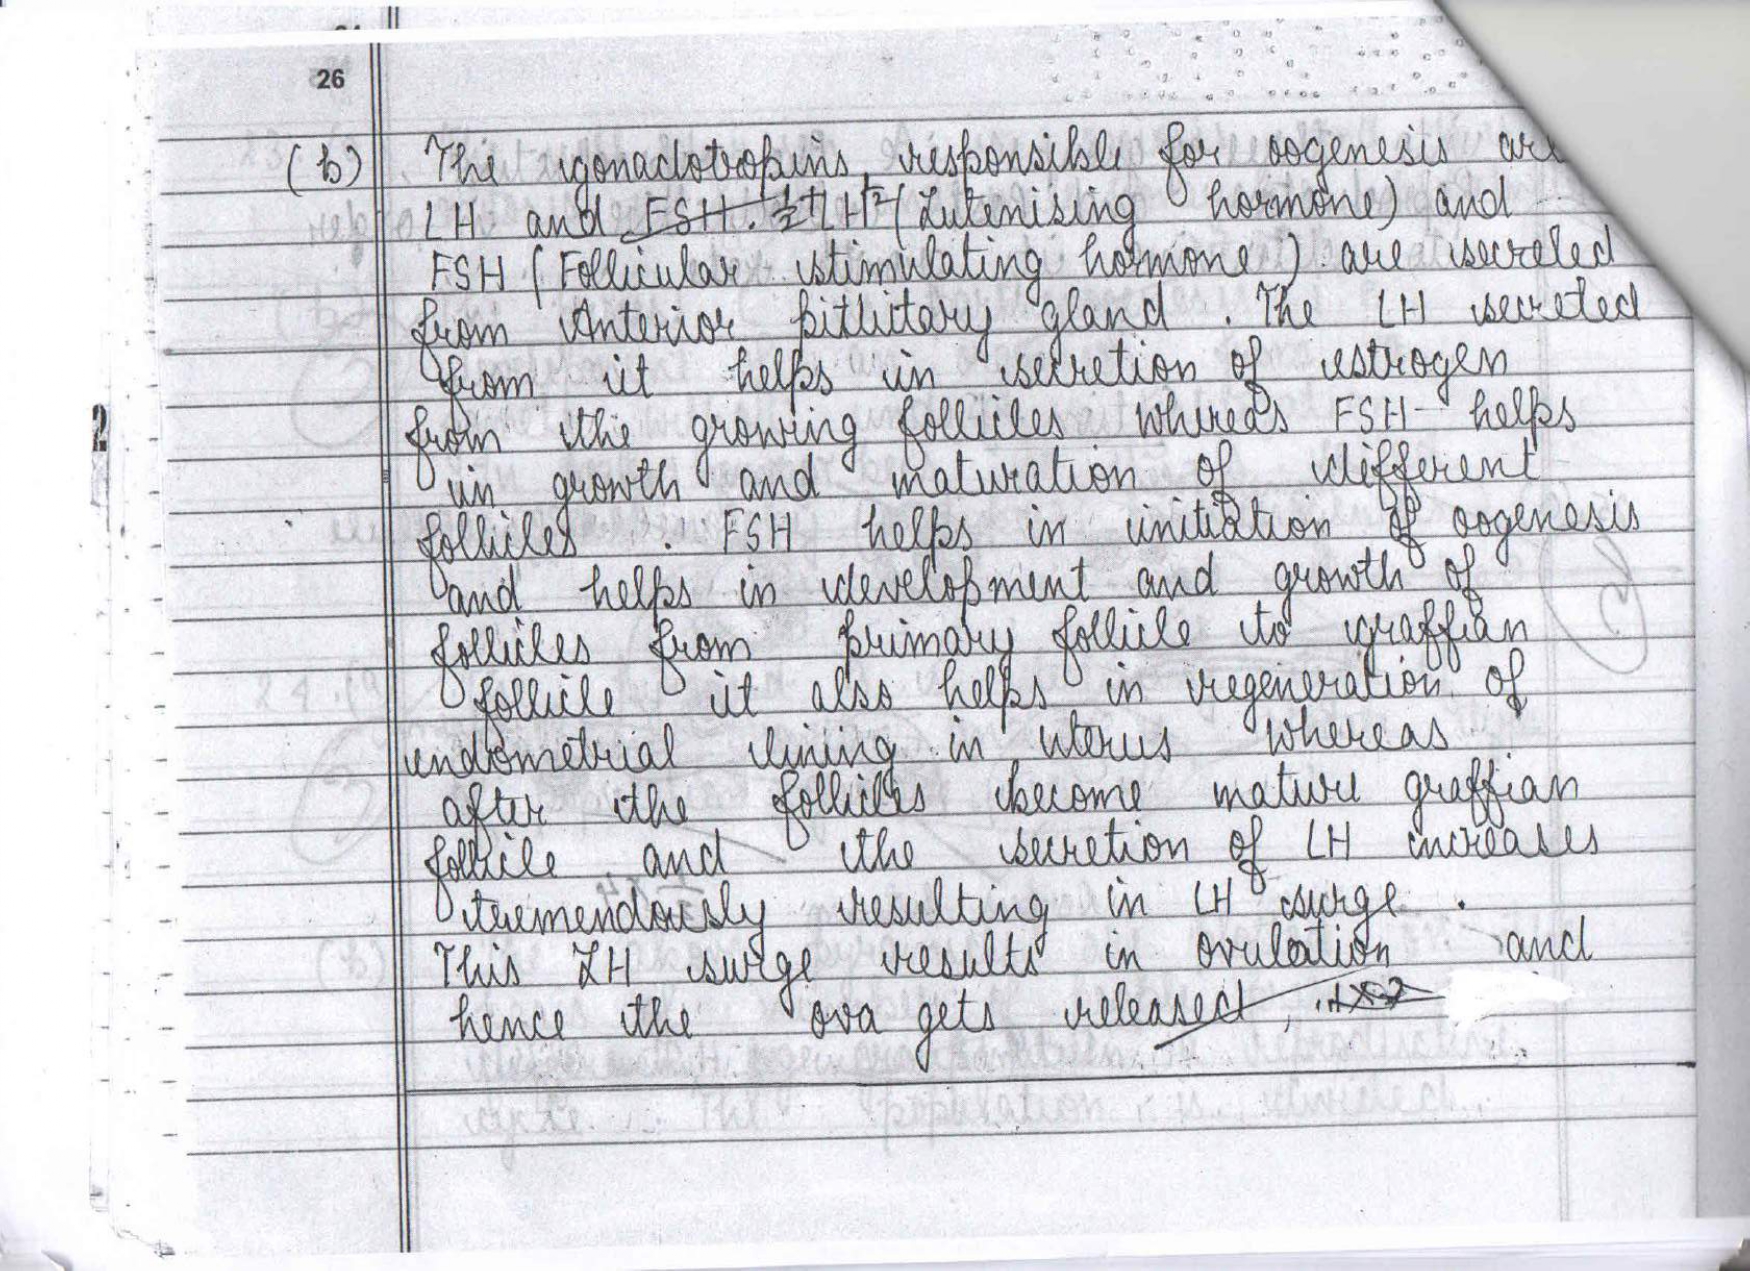 26
(b) The gonadotropins, responsible for oogenesis are
LH and FSH. LH (Lutenising hormone) and
FSH (Follicular stimulating hormone) are secreted
from Anterior pitiutary gland. The LH secreted
from it helps in secretion of estrogen
from the growing follicles whereas FSH helps
in growth and maturation of different
follicles. FSH helps in initiation of oogenesis
and helps in development and growth of
follicles from primary follicle to graffian
follicle it also helps in regeneration of
endometrial lining in uterus whereas
after the follicles become mature graffian
follicle and the secretion of LH increases
tremendously resulting in LH surge.
This LH surge results in ovulation and
hence the ova gets released,
2